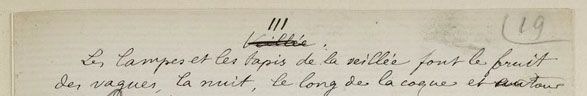 III
19
Veillée.
Les lampes et les tapis de la veillée font le bruit
des vagues, la nuit, le long de la coque et autour